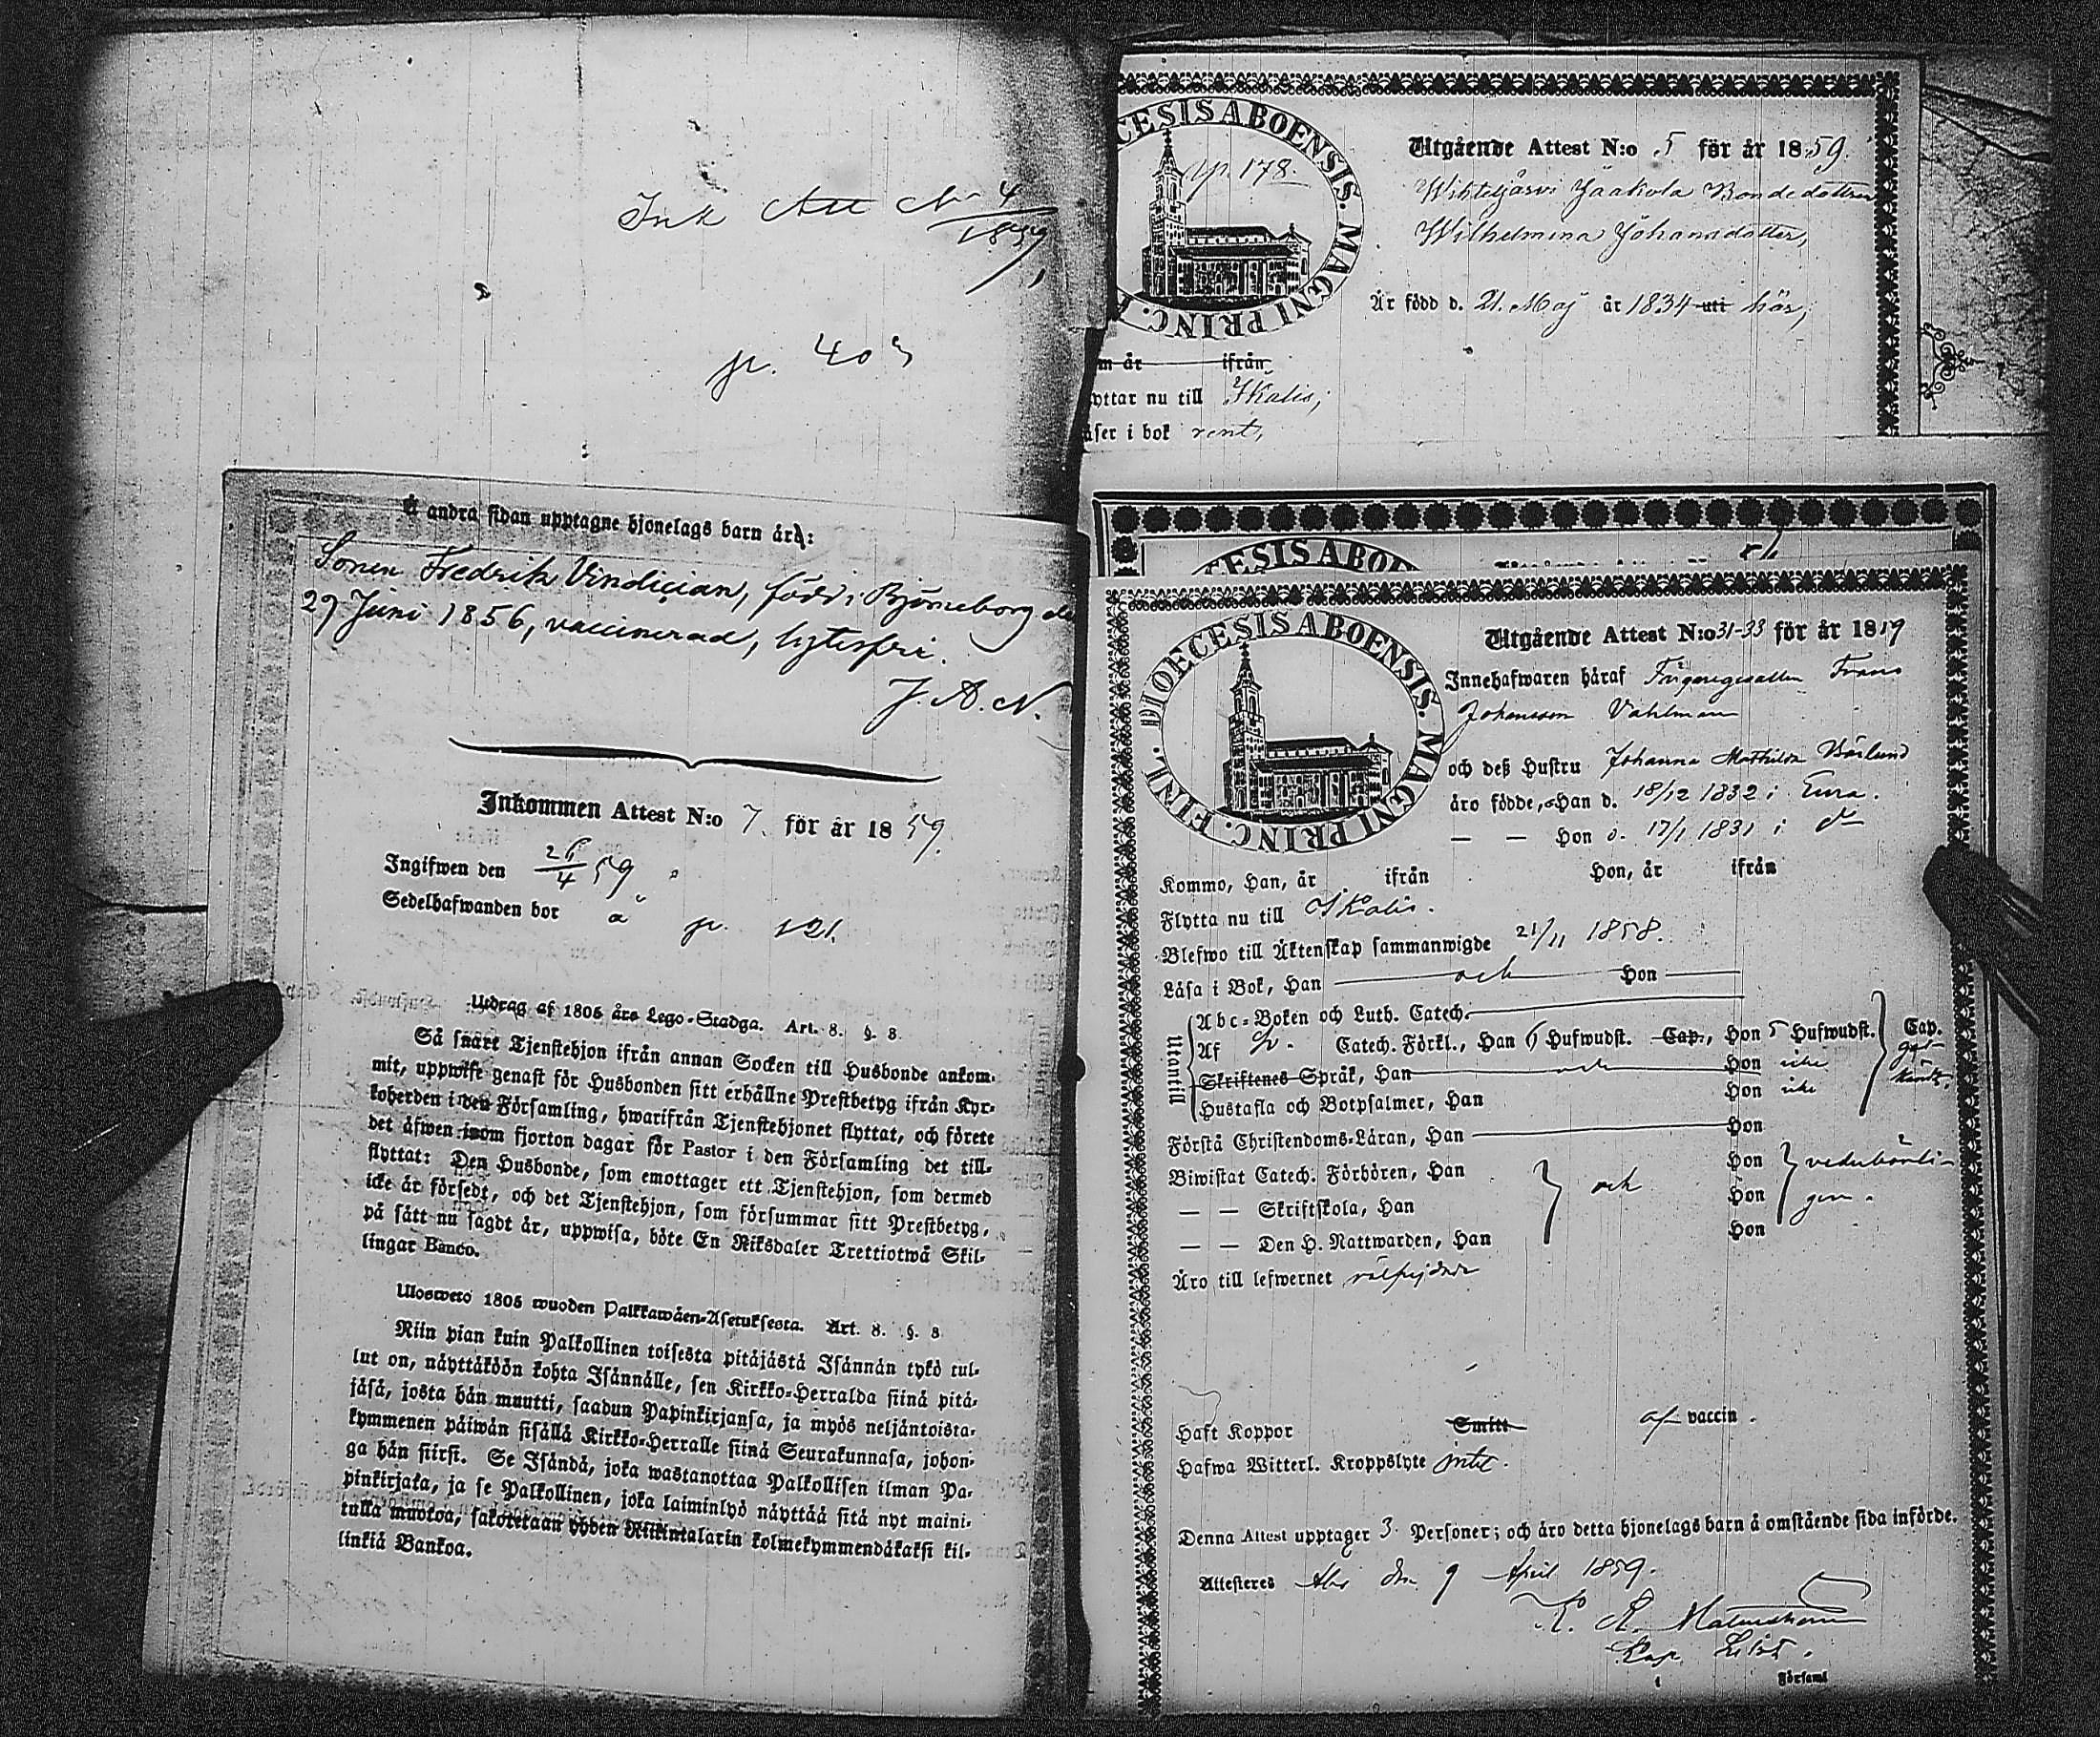 Ink Att No 4
1859,
p. 403
Å andra sidan upptagne hjonelags barn äro:
Sonen Fredrik Vindician, född i Björneborg de
29 Juni 1856, vaccinerad, lytesfri.
J. A. N.
Inkommen Attest N:o 7. för år 1859.
Ingifwen den 26/4 59
Sedelhafwanden bor å p. 121.
Utdrag af 1805 års Lego-Stadga. Art. 8. §. 8.
Så snart Tjenstehjon ifrån annan Socken till Husbonde ankom-
mit, uppwise genast för Husbonden sitt erhållne Prestbetyg ifrån Kyr-
koherden i den Församling, hwarifrån Tjenstehjonet flyttat, och förete
det äfwen inom fjorton dagar för Pastor i den Församling det till-
flyttat: Den Husbonde, som emottager ett Tjenstehjon, som dermed
icke är försedt, och det Tjenstehjon, som försummar sitt Prestbetyg,
på sätt nu sagdt är, uppwisa, böte En Riksdaler Trettiotwå Skil-
lingar Banco.
Uloswetö 1805 wuoden Palkkawäen-Asetuksesta. Art. 8. §. 8
Niin pian kuin Palkollinen toisesta pitäjästä Isännän tykö tul-
lut on, näyttäköön kohta Isännälle, sen Kirkko-Herralda siinä pitä-
jäsä, josta hän muutti, saadun Papinkirjansa, ja myös neljäntoista-
kymmenen päiwän sisällä Kirkko-Herralle siinä Seurakunnasa, johon-
ga hän siirsi. Se Isändä, joka wastanottaa Palkollisen ilman Pa-
pinkirjata, ja se Palkollinen, joka laiminlyö näyttää sitä nyt maini-
tulla muotoa, sakotetaan yhden Riikintalarin kolmekymmendäkaksi kil-
linkiä Bankoa.
CESIS ABOENSIS. MAGNI PRINC. F
p. 178.
Utgående Attest N:o 5 för år 1859.
Wihteljärvi Jaakola Bondedottren
Wilhelmina Johansdotter,
Är född d. 21. Maj år 1834 uti här,
m år ifrån
yttar nu till Ikalis,
äser i bok rent,
CESIS ABOE
DIOECESIS ABOENSIS. MAGNI PRINC. FINL.
Utgående Attest N:o 31-33 för år 1819
Innehafwaren häraf Färgaregesällen Frans
Johansson Vahlman
och deß Hustru Johanna Mathilda Bärlund
äro födde, Han d. 18/12 1832 i Eura.
— — Hon d. 17/1 1831 i do
Kommo, Han, år ifrån Hon, år ifrån
Flytta nu till Ikalis.
Blefwo till Äktenskap sammanwigde 21/11 1858.
Läsa i Bok, Han och Hon
Utantill
Abc-Boken och Luth. Catech.
Af Sv. Catech. Förkl., Han 6 Hufwudst. Cap., Hon 5 Hufwudst. Cap.
Skriftenes Språk, Han och Hon icke
Hustafla och Botpsalmer, Han Hon icke
Förstå Christendoms-Läran, Han Hon
Biwistat Catech. Förhören, Han Hon
— — Skriftskola, Han och Hon
— — Den H. Nattwarden, Han Hon
vederbörli-
gen.
Äro till lefwernet välfrejdade
Haft Koppor Smitt af vaccin.
Hafwa Witterl. Kroppslyte intet.
Denna Attest upptager 3 Personer; och äro detta hjonelags barn å omstående sida införde.
Attesteras Åbo den 9 April 1859.
Församl